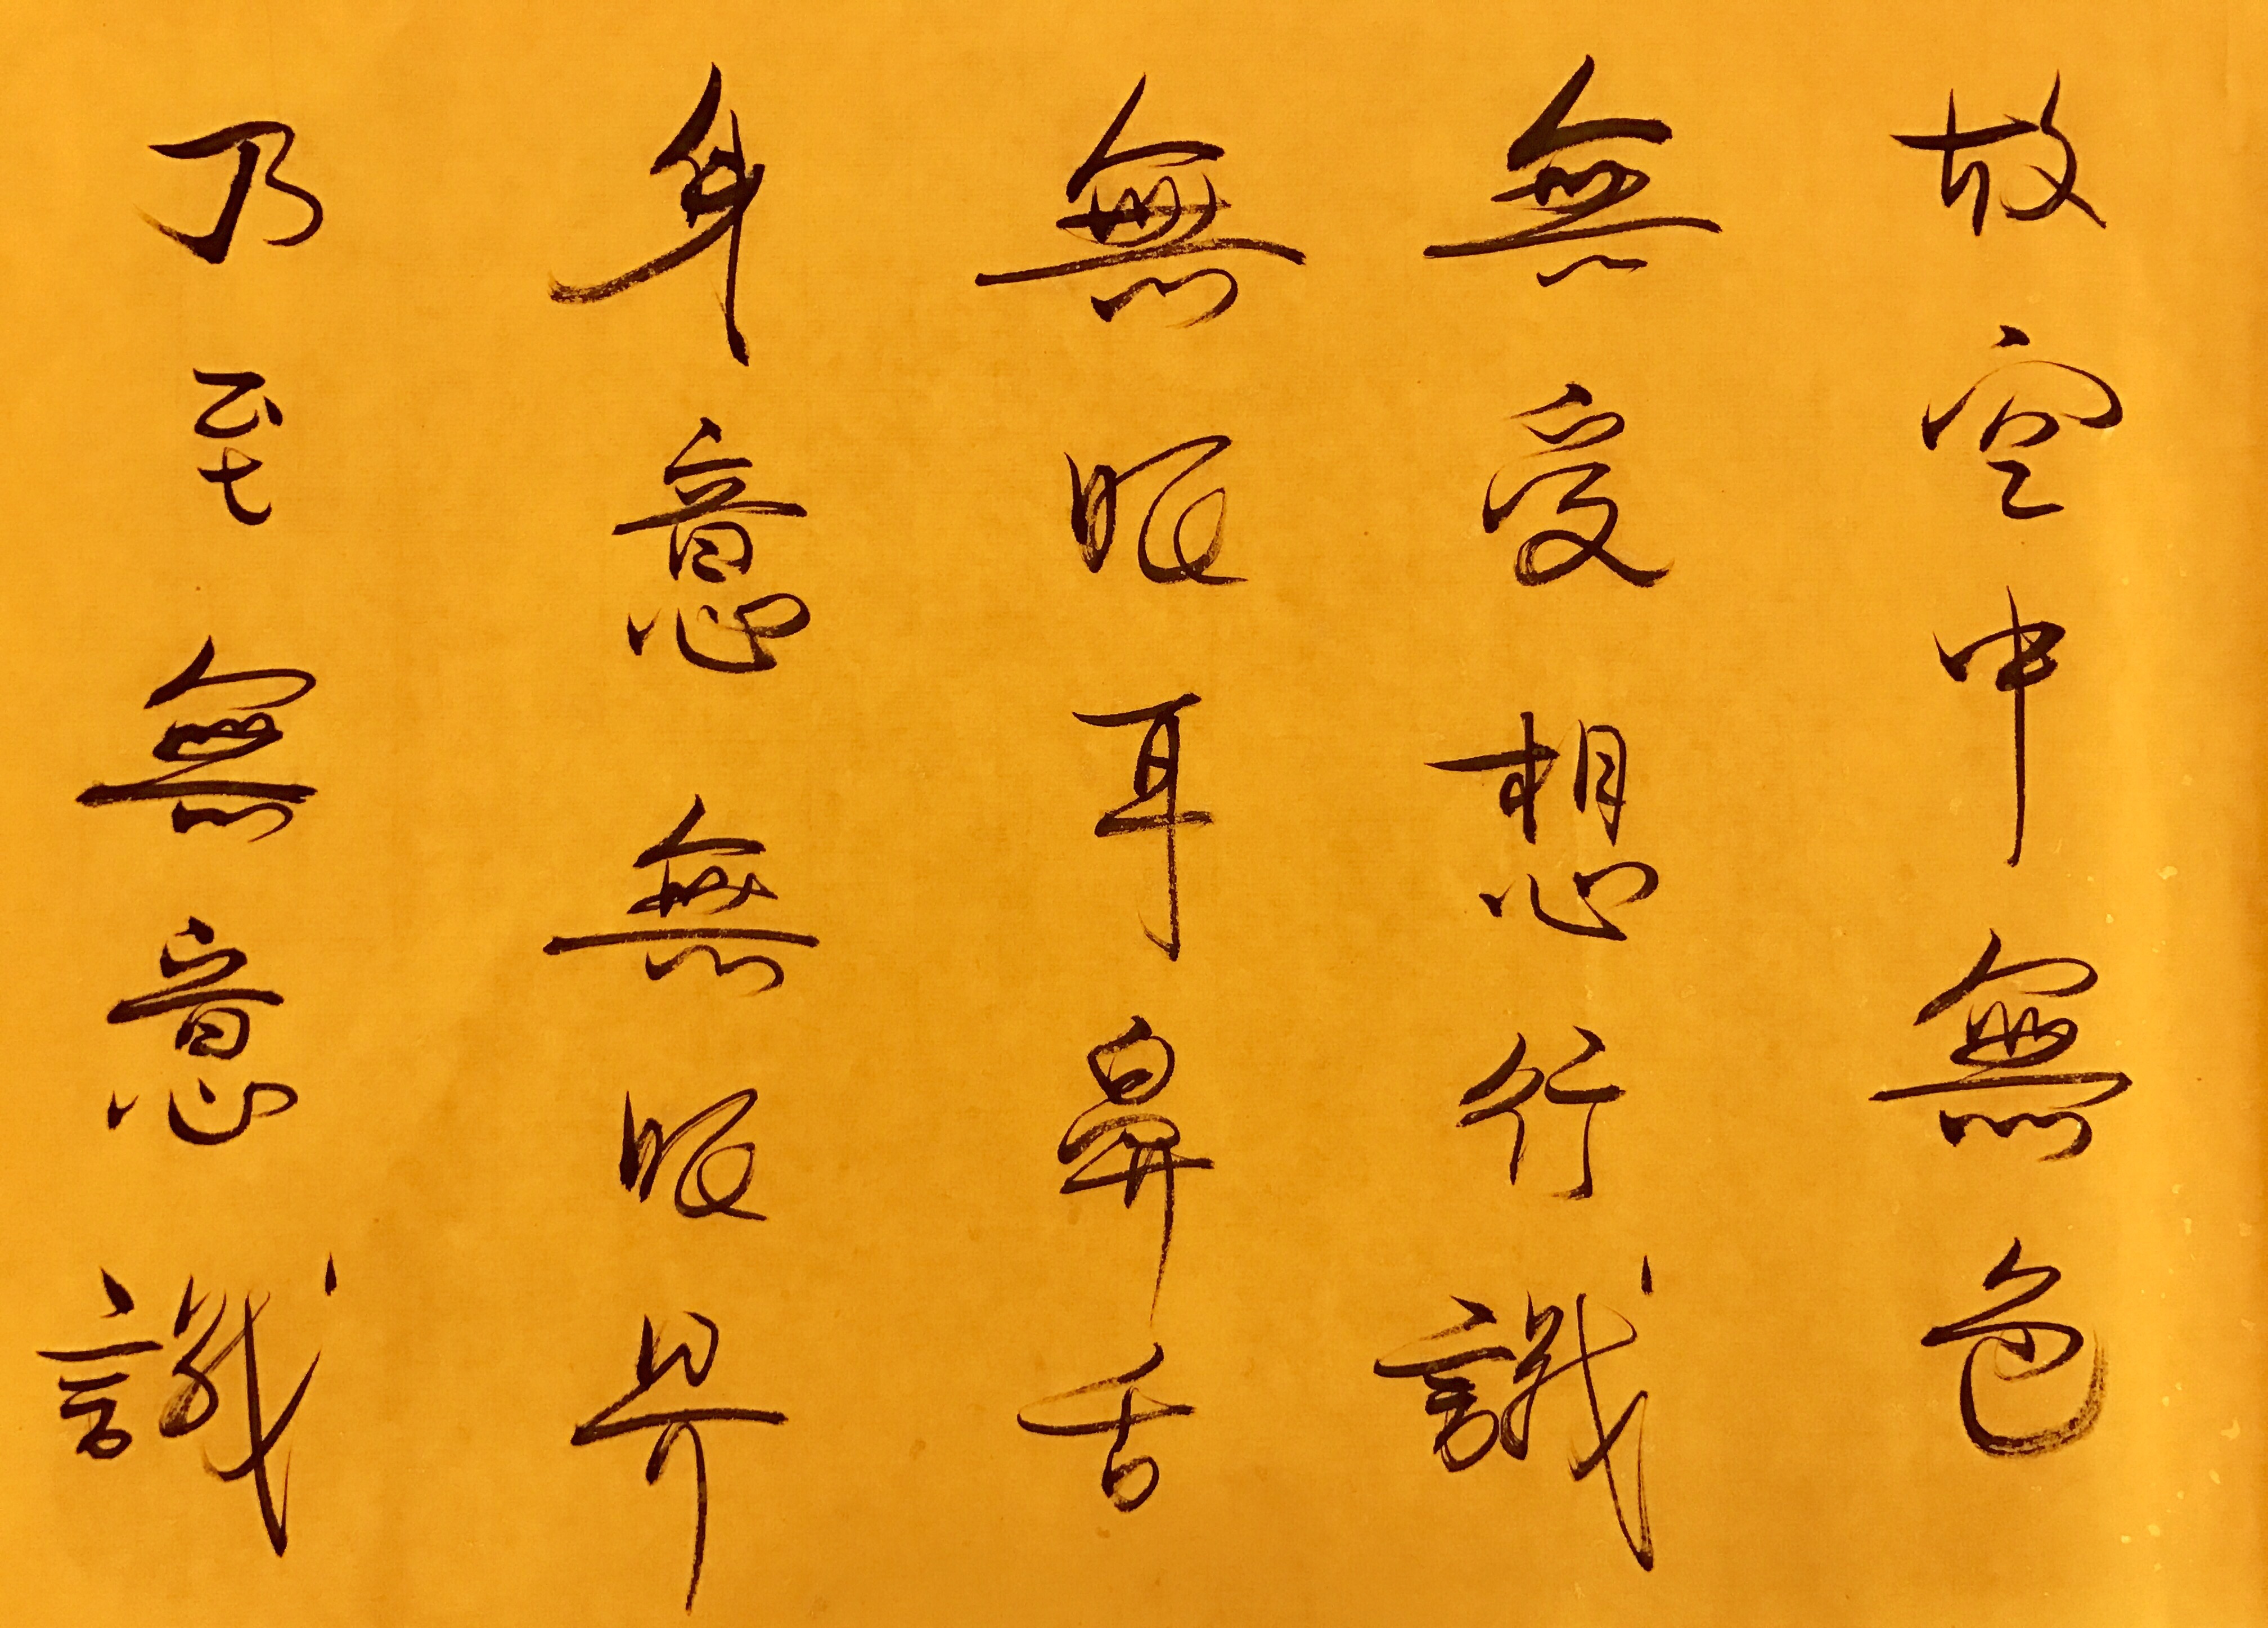 故空中無色
無受想行識
無眼耳鼻舌
身意無眼界
乃至無意識